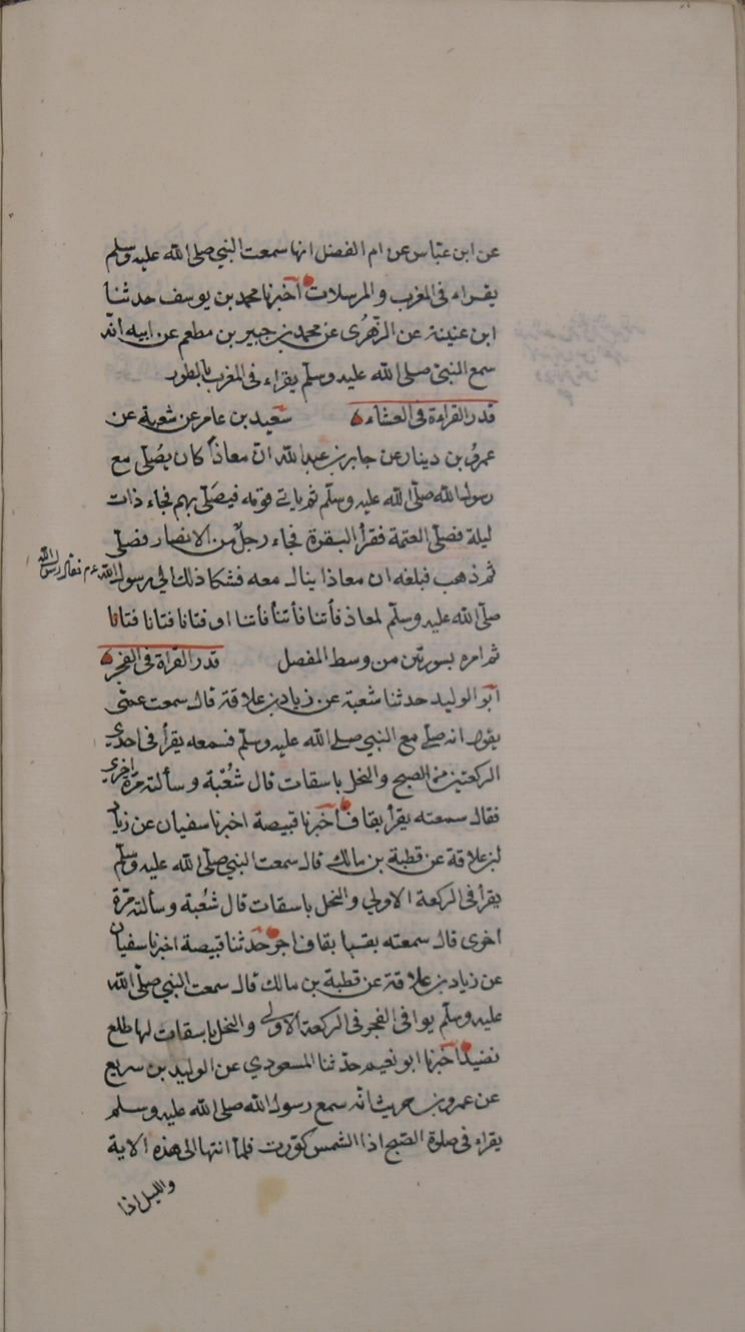 عن ابن عباس عن ام الفضل انها سمعت النبي صلى الله عليه وسلم
يقراء فى المغرب والمرسلات اخبرنا محمد بن يوسف حدثنا
ابن عنينة عن الزهرى عن محمد بن جبير بن مطعم عن ابيه انه
سمع النبى صلى الله عليه وسلم يقراء فى المغرب بالطور
قدر القراءة فى العشاء سعيد بن عامر عن شعبة عن
عمرو بن دينار عن جابر بن عبد الله ان معاذا كان يصلى مع
رسول الله صلى الله عليه وسلم ثم ياتى قومه فيصلى بهم فجاء ذات
ليلة فصلى العتمة فقرأ البقرة فجاء رجل من الانصار فصلى
ثم ذهب فبلغه ان معاذا ينال معه فشكا ذلك الى رسول الله عم فقال رسول الله
صلى الله عليه وسلم لمعاذ فأتنا فأتنا فأتنا او فتانا فتانا فتانا
ثم امره بسورتين من وسط المفصل قدر القراة فى الفجر
ابو الوليد حدثنا شعبة عن زياد بن علاقة قال سمعت عمى
يقول انه صلى مع النبي صلى الله عليه وسلم فسمعه يقرأ فى احدي
الركعتين من الصبح والنخل باسقات قال شعبة وسألته مرة اخري
فقال سمعته يقرأ بقاف اخبرنا قبيصة اخبرنا سفيان عن زياد
بن علاقة عن قطبة بن مالك قال سمعت النبي صلى الله عليه وسلم
يقرأ فى الركعة الاولي والنخل باسقات قال شعبة وسألته مرة
اخرى قال سمعته بقاف حدثنا قبيصة اخبرنا سفيان
عن زياد بن علاقة عن قطبة بن مالك قال سمعت النبي صلى الله
عليه وسلم يوا فى الفجر فى الركعة الاولى والنخل باسقات لها طلع
نضيد اخبرنا ابو نعيم حدثنا المسعودي عن الوليد بن سريع
عن عمرو بن حريث انه سمع رسول الله صلى الله عليه وسلم
يقراء فى صلوة الصبح اذا الشمس كورت فلما انتها الى هذه الاية
والليل اذا